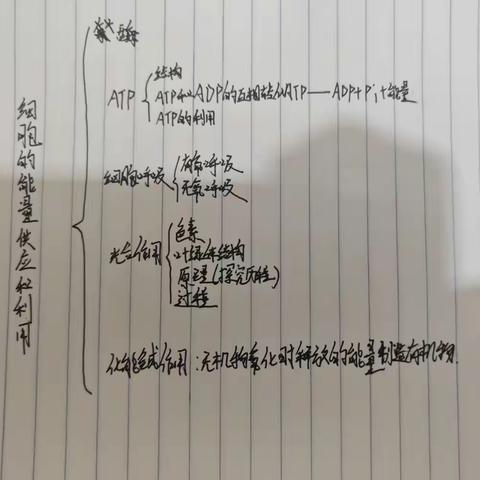 细胞的能量供应和利用
酶
ATP
结构
ATP和ADP的互相转化ATP——ADP+Pi+能量
ATP的利用
细胞呼吸
有氧呼吸
无氧呼吸
光合作用
色素
叶绿体结构
原理(探究历程)
过程
化能合成作用:无机物氧化时释放的能量制造有机物.